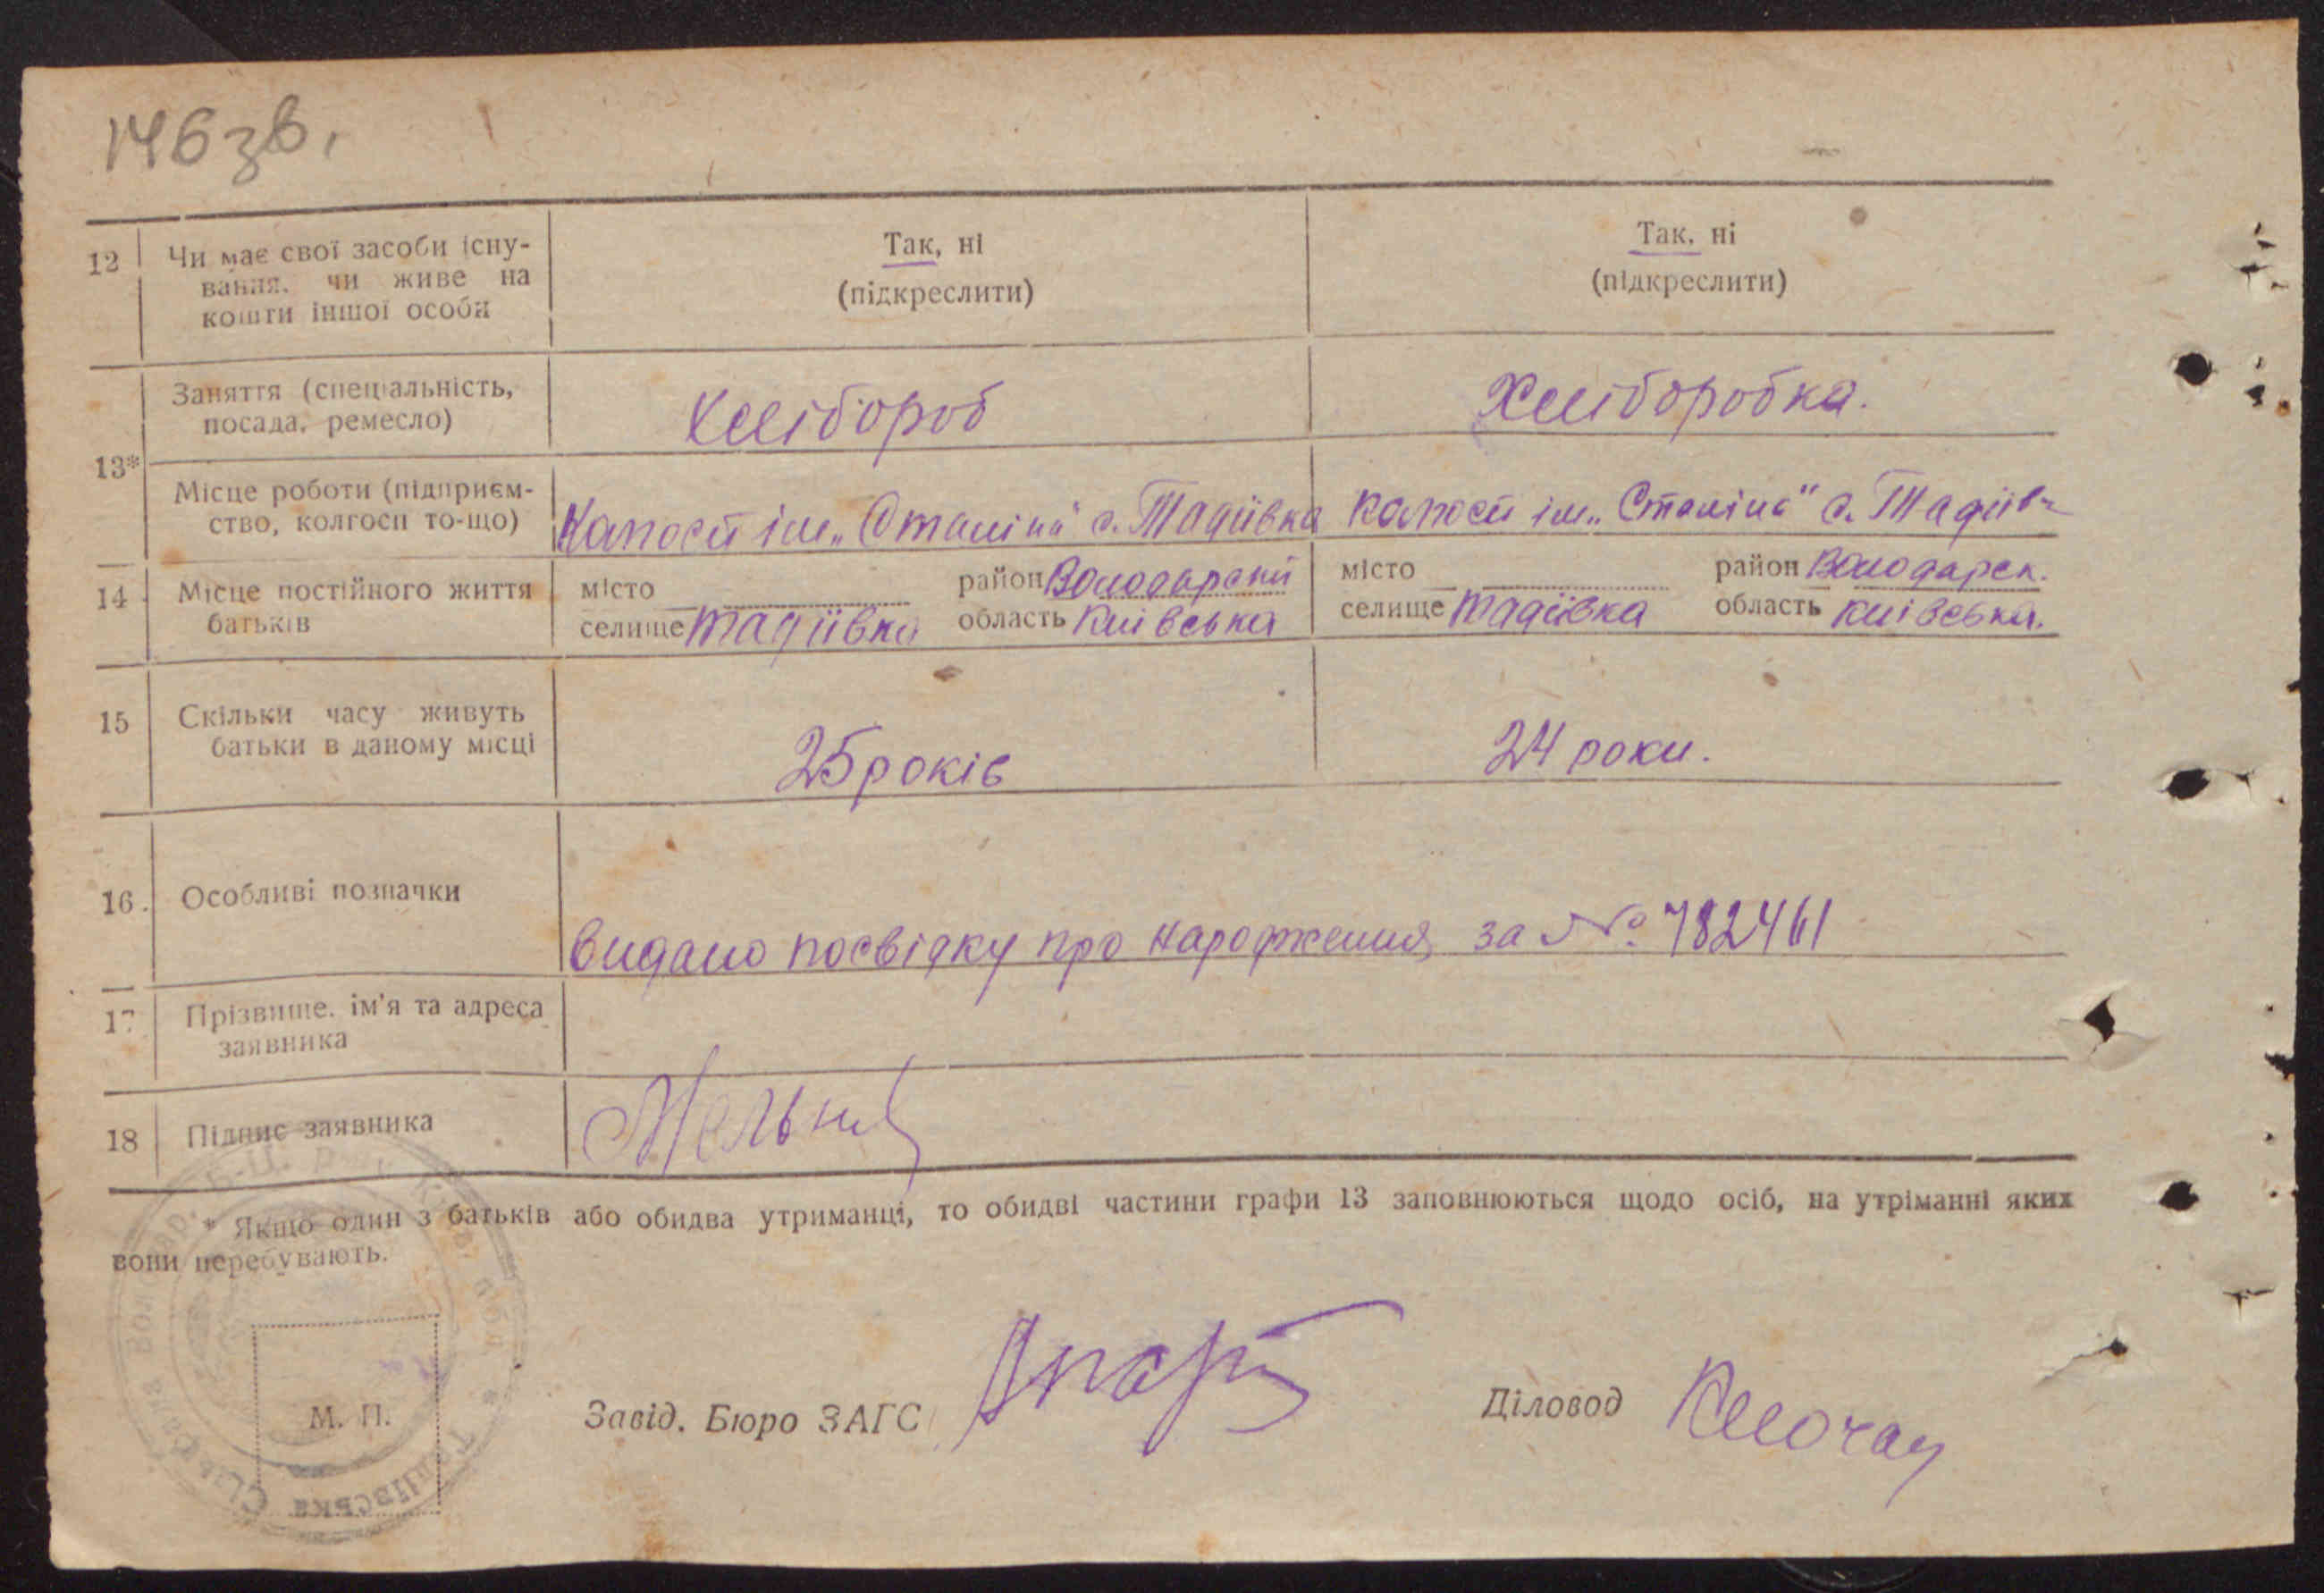 146 зв.
12 Чи має свої засоби існу-
вання, чи живе на
кошти іншої особи
Так, ні
(підкреслити)
Так, ні
(підкреслити)
13*
Заняття (спеціальність,
посада, ремесло)
Хлібороб
Хліборобка.
Місце роботи (підприєм-
ство, колгосп то-що)
ім. „Сталіна" с. Тадіївка
ім. „Сталіна" с. Тадіїв-
14 Місце постійного життя
батьків
місто район Володарский
селище Тадіївка область Київська
місто район Володарск.
селище Тадіївка область Київська.
15 Скільки часу живуть
батьки в даному місці
25 років
24 роки.
16. Особливі позначки
Видано посвідку про народження за № 782461
17 Прізвище, ім'я та адреса
заявника
18 Підпис заявника
Мельник
* Якщо один з батьків або обидва утриманці, то обидві частини графи 13 заповнюються щодо осіб, на утріманні яких
вони перебувають.
М. П.
Завід. Бюро ЗАГС
Діловод
Тадіївська